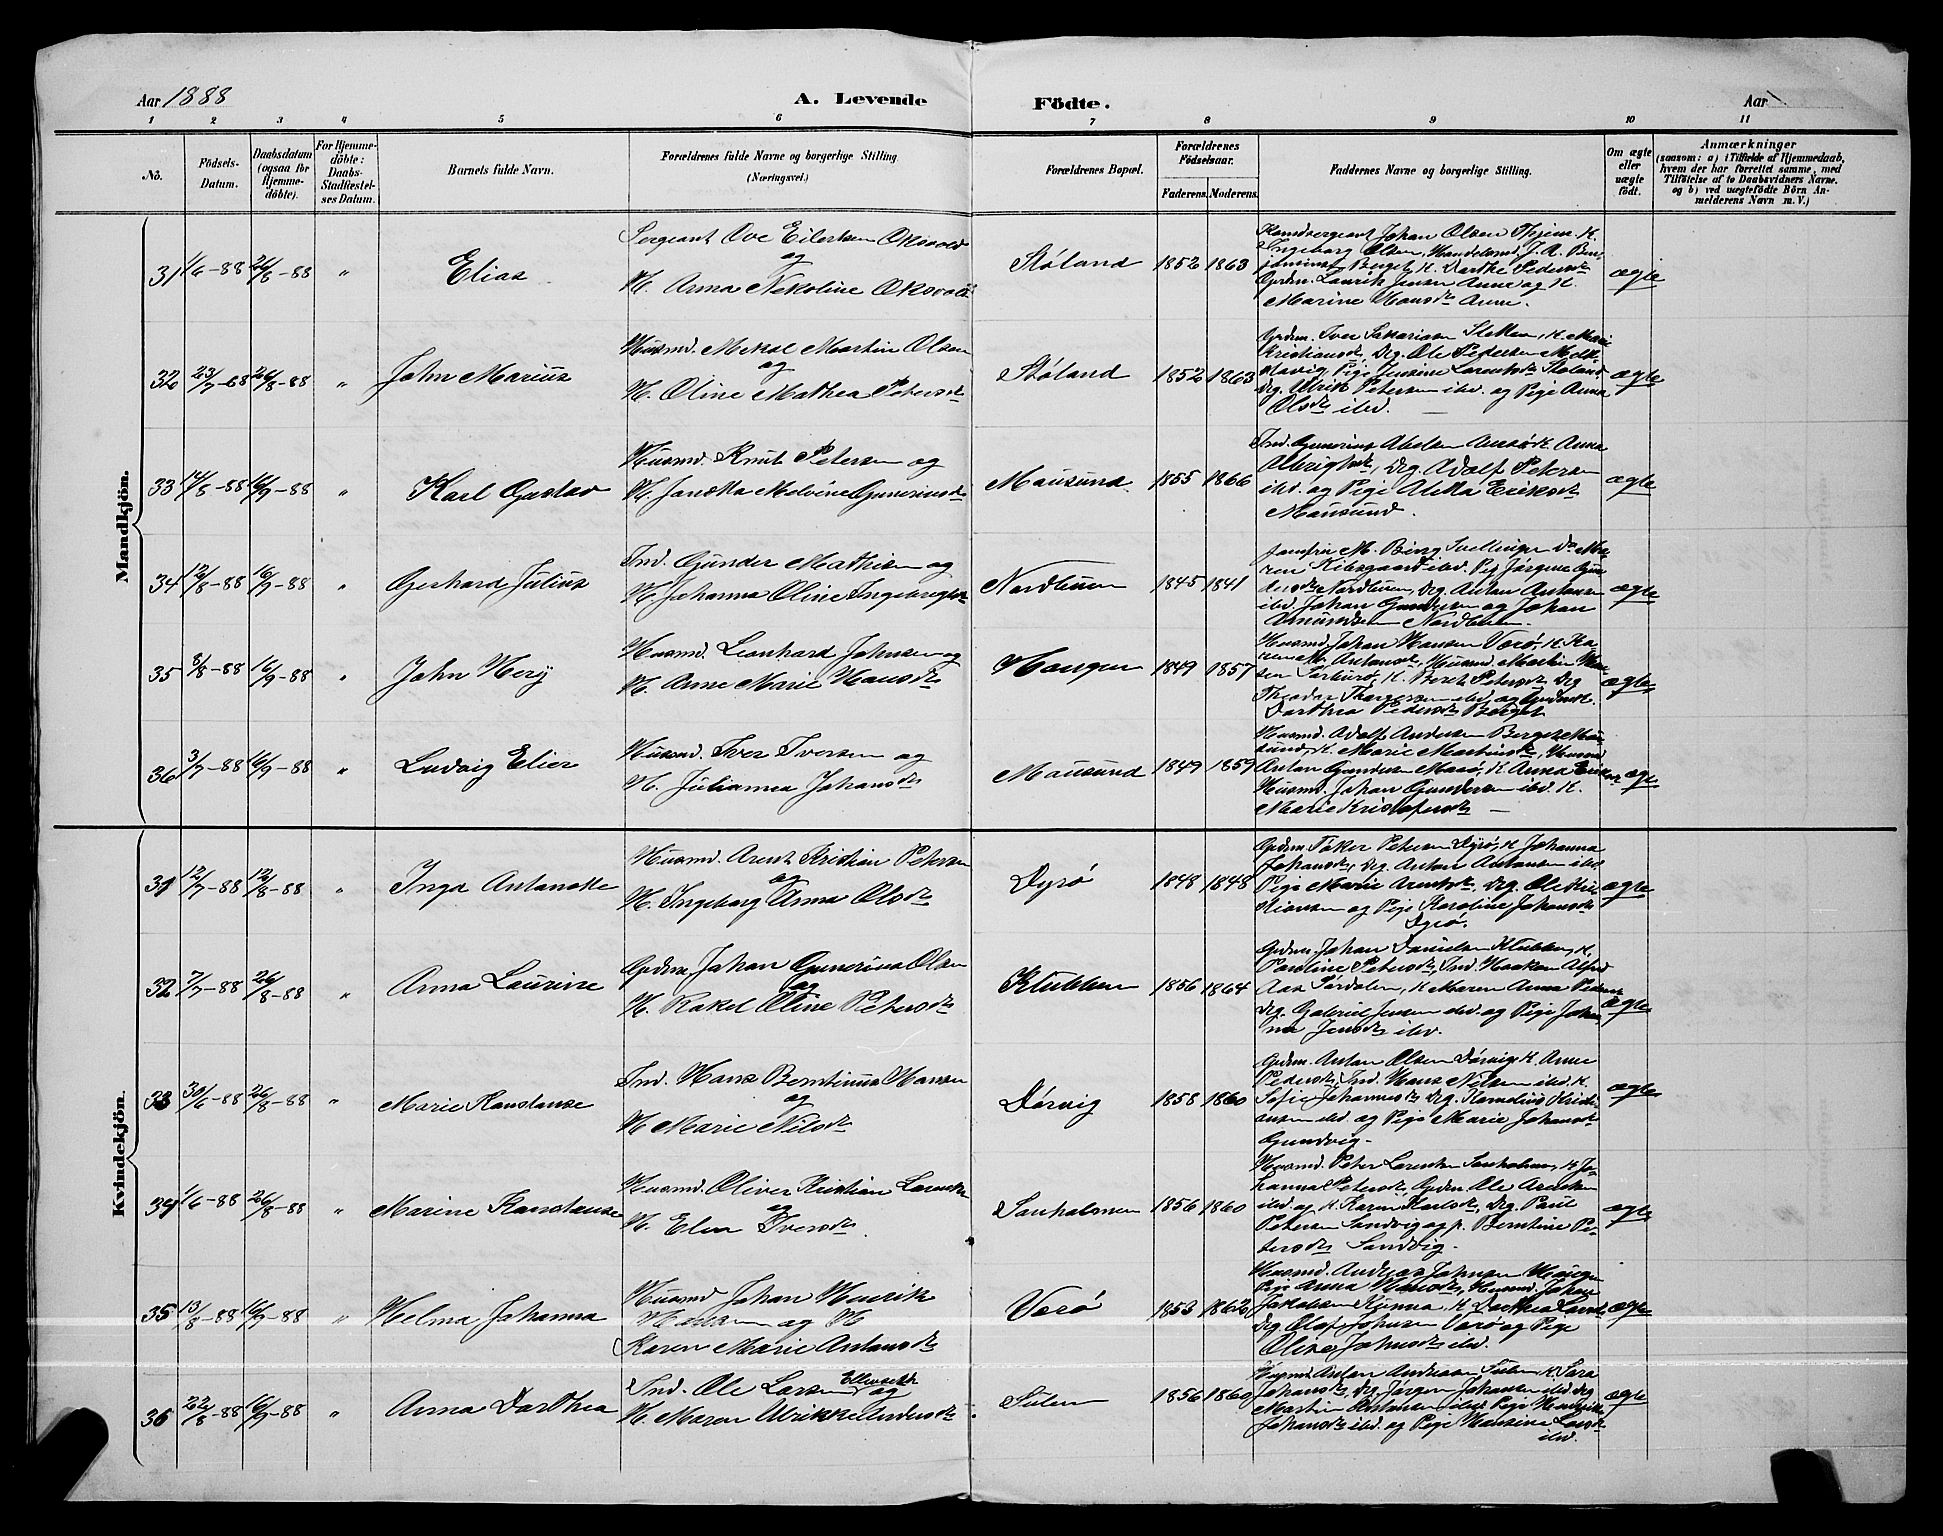 Aar 1888
A. Levende Födte.
Aar
1 2 3 4 5 6 7 8 9 10 11
No.
Födsels-Datum.
Daabsdatum (ogsaa for Hjemmedöbte).
For Hjemmedöbte: Daabs-Stadfæstelses Datum.
Barnets fulde Navn.
Forældrenes fulde Navne og borgerlige Stilling (Næringsvei.)
Forældrenes Bopæl.
Forældrenes Födselsaar.
Faderens. Moderens.
Faddernes Navne og borgerlige Stilling.
Om ægte eller uægte födt.
Anmærkninger
(saasom: a) i Tilfælde af Hjemmedaab,
hvem der har forrettet samme, med
Tilföielse af to Daabsvidners Navne,
og b) ved uægtefödte Börn Anmelderens Navn m. V.)
Mandkjön.
31 1/6-88 26/8-88 " Elias
Sergeant Ove Eilertsen Oksvold
og
H. Anna Nekoline Oksvold
Støland 1852 1863
Johan Olsen
Ingeborg Olsen, Handelsmd J. A. Ben-
jaminsen Berget, H. Dorthe Pedersdt
Gdm. Laurits Jensen Aune og H.
Marine Hansdt Aune.
ægte
32 23/7-68 26/8-88 " John Marius
Husmd. Mekal Martin Olsen
og
H. Oline Mathea Petersdt
Støland 1852 1863
Gdm. Iver Sakariasen Sletten, H. Mari
Kristiansdt, Drg. Ole Pedersen
Pige Jensine Larentsdt Støland
Drg. Ulrik Petersen ibd. og Pige Anna
Olsdt ibd.
ægte
33 14/5-88 16/9-88 " Karl Gustav
Husmd. Knut Petersen og
H. Janetta Melvine Guneriusdt
Mausund 1855 1866
Ind. Gunerius Abelsen H. Anna
Albrigtsdt, Drg. Adolf Petersen
ibd. og Pige Aletta Eriksdt
Mausund.
ægte
34 12/8-88 16/9-88 " Gerhard Julius
Ind. Gunder Mathisen og
H. Johanna Oline Ingebrigtsdt
Nordbuen 1845 1841
Jomfru M. Bing Svellingen
Kibsgaard ibd. Pig Jørgine Gun-
dersdt Nordbuen, Drg. Anton Antonsen
ibd. Johan Gundersen og Johan
Nordbuen
ægte
35 8/8-88 16/9-88 " John Hery
Husmd. Leonhard Johnsen og
H. Anne Marie Hansdt
Haugen 1849 1857
Husmd Johan Hansen Værø, H. Ka-
ren M. Antonsdt, Husmd. Martin
H. Beret Petersdt, Drg
Theodor ibd. og
Dorthea Pedersdt Berget
ægte
36 3/7-88 16/9-88 " Ludvig Elier
Husmd. Iver Iversen og
H. Julianna Johansdt
Mausund 1849 1859
Husmd. Adolf Andersen Berget Mau-
sund, H. Marie Martinsdt, Husmd
Anton Gundersen Masø, H. Anna Eriksdt
Husmd. Johan Gundersen ibd. H.
Marie Kristofersdt
ægte
Kvindekjön.
31 12/7-88 12/8-88 " Inga Antonette
Husmd. Arent Kristian Petersen
og
H. Ingeborg Anna Olsdt
Dyrø 1848 1848
Gdm. Toker Petersen Dyrø, H. Johanna
Johansdt, Drg. Anton Antonsen ibd
Pige Marie Arentsdt, Drg. Ole Kris-
tiansen og Pige Karoline Johansdt
Dyrø.
ægte
32 7/7-88 26/8-88 " Anna Laurine
Gdm. Johan Gunerius Olsen
og
H. Rakel Oline Petersdt
Klubben 1856 1864
Gdm. Johan Danielsen Klubben, H.
Pauline Petersdt, Ind. Haakon Alfred
Aas Sørdalen, H. Maren Anna Pedersdt
Drg. Gabriel Jensen ibd. og Pige Johan-
na Jensdt ibd.
ægte
33 30/6-88 26/8-88 " Marie Konstanse
Ind. Hans Berntinus Hansen
og
H. Marie Nilsdt
Dørvig 1858 1860
Gdm. Anton Olsen Dørvig H. Anne
Pedersdt, Ind. Hans Nilsen ibd. H.
Sofie Johannesdt Drg. Kornelius Kristi-
ansen ibd. og Pige Marie Johansdt
Gundvig.
ægte
34 1/6-88 26/8-88 " Marine Konstanse
Husmd. Oliver Kristian Larentsen
og
H. Elen Iversdt.
Sanholmen 1856 1860
Husmd. Peter Larentsen Sanholmen, H. Jo-
hanna Petersdt, Gdm. Ole Arentsen
ibd og H. Karen Karlsdt, Drg. Paul
Petersen Sandvig og p. Berntine Pe-
tersdt Sandvig.
ægte
35 13/8-88 16/9-88 " Helma Johanna
Husmd Johan Henrik
Hansen og H
Karen Marie Antonsdt
Værø 1853 1862
Husmd. Andreas Johnsen Haugen
Pige Anna Hansdt, Husmd. Johan
Jakobsen Kunna, H. Dorthea
Drg Olaf Johnsen Værø og Pige
Oline Johnsdt ibd.
ægte
36 22/8-88 16/9-88 " Anna Dorthea
Ind. Ole Larsen og
H. Maren Ulrikke
Sulen 1856 1860
Husmd. Anton Andreasen Sulen H. Sara
Johansdt, Drg Jørgen Johansen ibd Drg
Martin ibd Pige
Johansdt ibd. og Pige Hansine Larsdt
ibd.
ægte